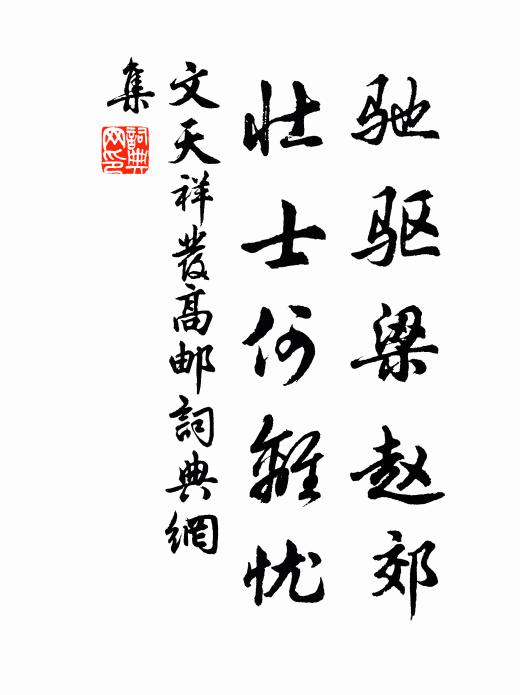 驰驱梁赵郊
壮士何離忧
文天祥發高邮詞典網
集
詞典網印